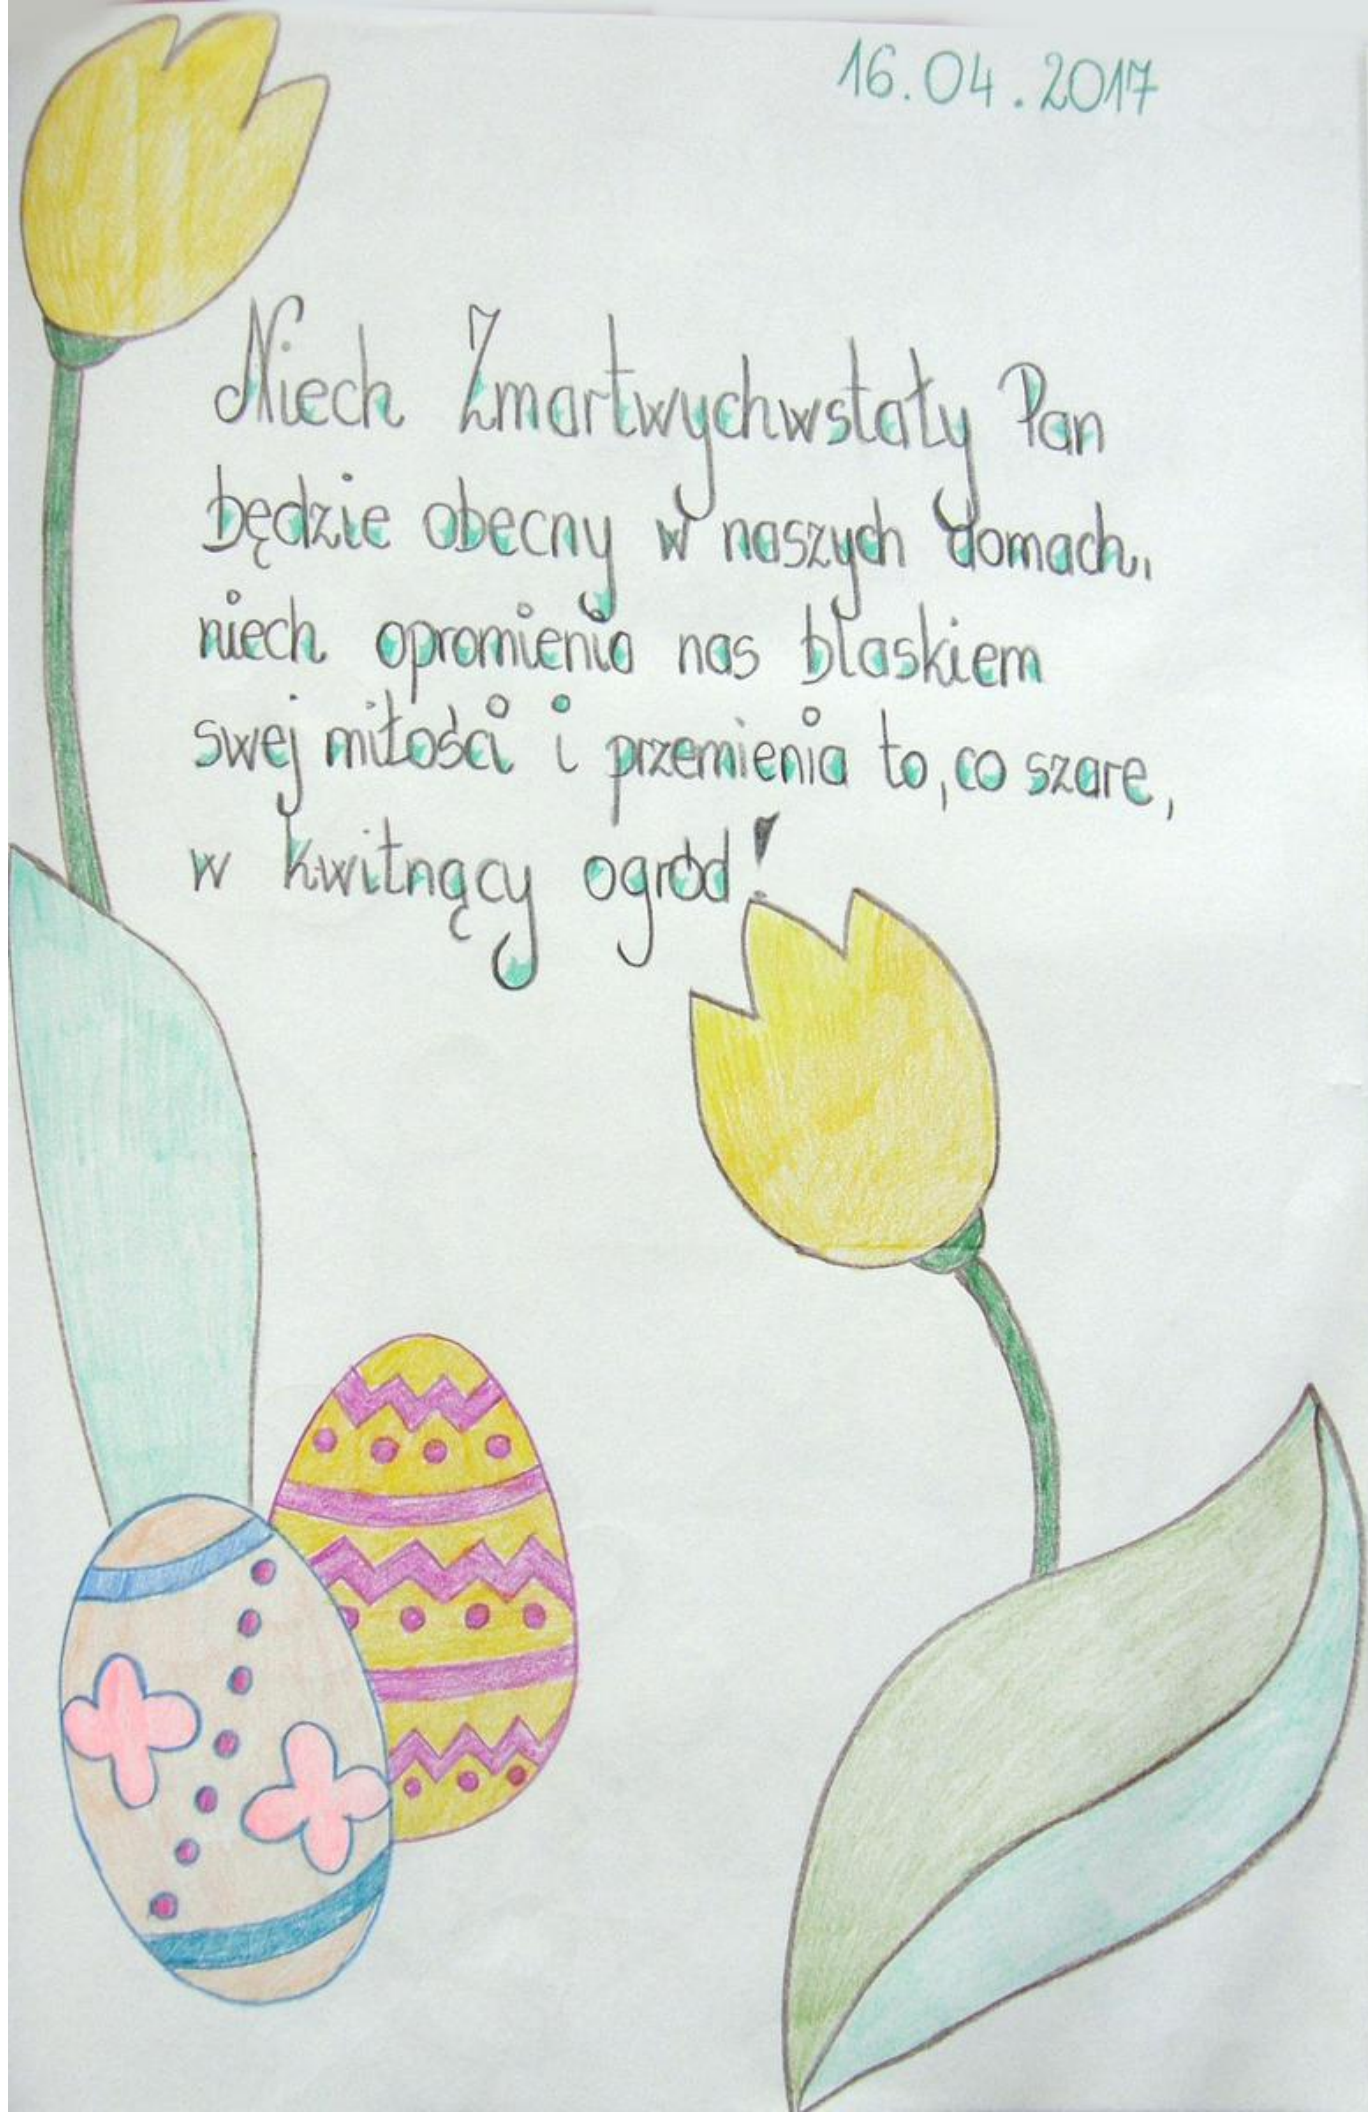 16.04.2017
Niech Zmartwychwstały Pan
będzie obecny w naszych domach,
niech opromienia nas blaskiem
swej miłości i przemienia to, co szare,
w kwitnący ogród!